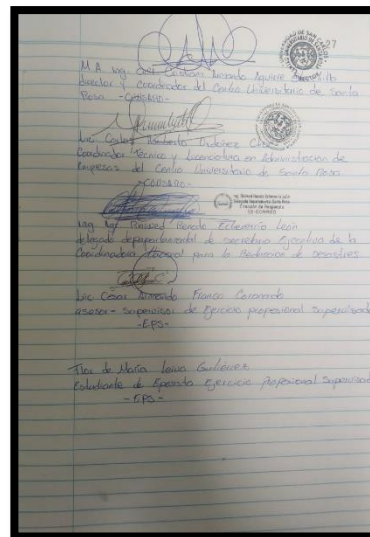 27
M.A. Ing. José Aguirre
director y coordinador del Centro Universitario de Santa
Rosa -CUNSARO-
Lic Carlos Humberto Ordoñez
Coordinador Técnico y Licenciatura en Administración de
Empresas del Centro Universitario de Santa Rosa
-CUNSARO-
Ing. Agr Echeverría León
delegado departamental de secretaria Ejecutiva de la
Coordinadora para la Reducción de desastres
Lic César Armando Franco Coronado
asesor - supervisor de Ejercicio profesional supervisado
-EPS-
Flor de María Leiva Gutiérrez
Estudiante de Ejercicio profesional supervisado
-EPS-